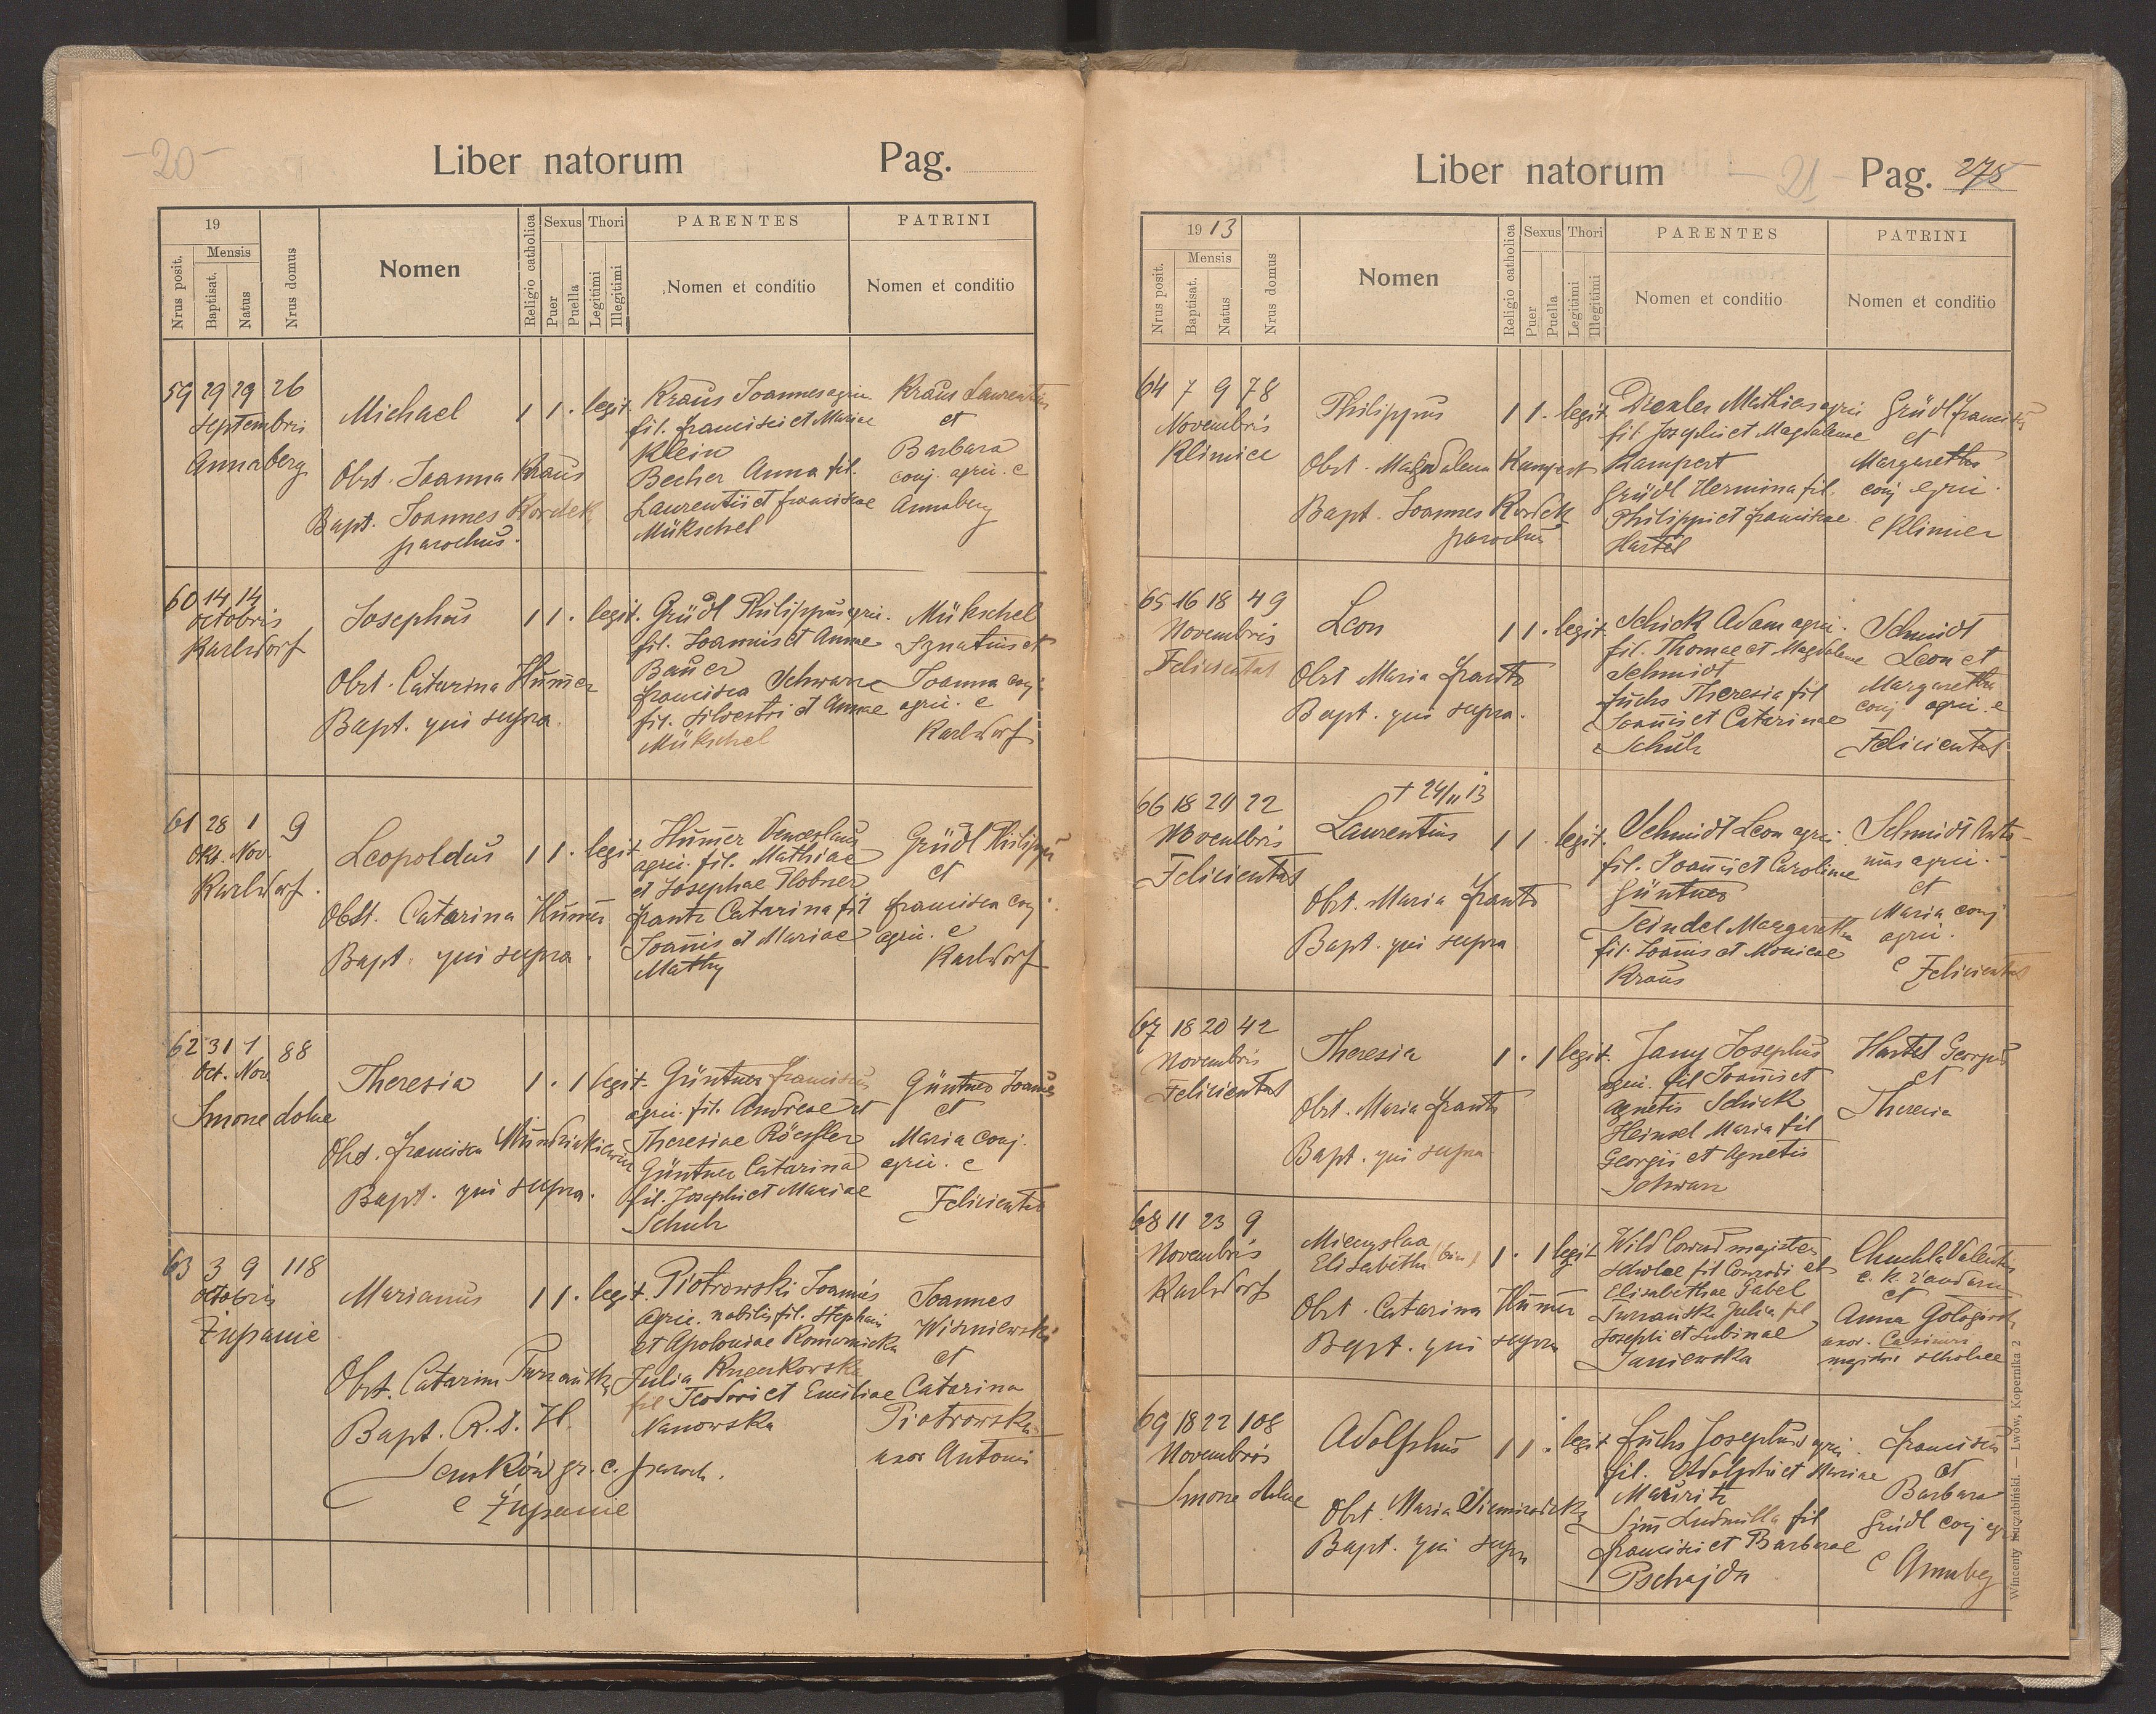 -20-
Liber natorum Pag.
19
Mensis
Nrus posit.
Baptisat.
Natus
Nrus domus
Nomen
Religio catholica
Sexus
Puer
Puella
Thori
Legitimi
Illegitimi
PARENTES
Nomen et conditio
PATRINI
Nomen et conditio
59 29 29 26
Septembris
Annaberg
Michael
Obst. Joanna Kraus
Bapt. Joannes Kordek
parochus.
1 1 . legit.
Kraus Joannes agric
fil. Francisci et Mariae
Klein
Becher Anna fil.
Laurentii et Franciscae
Mükschel
Kraus Laurentius
et
Barbara
conj. agric. e
Annaberg
60 14 14
Octobris
Karlsdorf
Josephus
Obst. Catarina Hum̄er
Bapt. qui supra.
1 1 . legit.
Gründl Philippus agric.
fil. Joannis et Annae
Bauer
Francisca Schwarz
fil. Silvestri et Annae
Mükschel
Mükschel
Ignatius et
Joanna conj.
agric. e
Karlsdorf
61 28 1 9
Okt. Nov.
Karlsdorf.
Leopoldus
Obst. Catarina Hum̄er
Bapt. qui supra.
1 1 . legit.
Hum̄er Venceslaus
agric. fil. Mathiae
et Josephae Plobner
Frantz Catarina fil
Joan̄is et Mariae
Mathy
Gründl Philippus
et
Francisca conj.
agric. e
Karlsdorf
62 31 1 88
Oct. Nov.
Smorze dolne
Theresia
Obst. Francisca
Bapt. qui supra.
1 . 1 legit.
Güntner Franciscus
agric. fil. Andreae et
Theresiae Röessler
Güntner Catarina
fil. Josephi et Mariae
Schulz
Güntner Joannes
et
Maria conj.
agric. e
Felicienthal
63 3 9 118
Octobris
Żupanie
Marianus
Obst. Catarina Turzańska
Bapt. R. D. H.
Senków gr. c. paroch.
e Żupanie
1 1 . legit.
Piotrowski Joannes
agric. nobilis fil. Stephani
et Apoloniae Komarnicka
Julia
fil Teodori et Emiliae
Nanowska
Joannes
Wiśniewski
et
Catarina
Piotrowska
uxor Antoni
Liber natorum - 21 - Pag. 278
1913
Mensis
Nrus posit.
Baptisat.
Natus
Nrus domus
Nomen
Religio catholica
Sexus
Puer
Puella
Thori
Legitimi
Illegitimi
PARENTES
Nomen et conditio
PATRINI
Nomen et conditio
64 7 9 78
Novembris
Klimiec
Philippus
Obst. Magdalena Kampert
Bapt. Joannes Kordek
parochus
1 1 . legit.
Drexler Mathias agric
fil. Josephi et Magdalenae
Kampert
Gründl Hermina fil.
Philippi et Franciscae
Hartel
Gründl Franciscus
et
Margaretha
conj agric.
e Klimiec
65 16 18 49
Novembris
Felicienthal
Leon
Obst Maria Frantz
Bapt. qui supra.
1 1 . legit.
Schick Adam agric.
fil. Thomae et Magdalenae
Schmidt
Fuchs Theresia fil
Joan̄is et Catarinae
Schulz
Schmidt
Leon et
Margaretha
conj agric. e
Felicienthal
66 18 21 22
Novembris
Felicienthal
+ 24/11 13
Laurentius
Obst. Maria Frantz
Bapt. qui supra
1 1 . legit.
Schmidt Leon agric.
fil. Joan̄is et Carolinae
Güntner
Teindel Margaretha
fil. Joannis et Monicae
Kraus
Schmidt Anto-
nius agric.
et
Maria conj
agric.
e Felicienthal
67 18 20 42
Novembris
Felicienthal
Theresia
Obst. Maria Frantz
Bapt. qui supra
1 . 1 legit.
Jany Josephus
agric. fil Joan̄is et
Agnetis Schick
Heinsel Maria fil
Georgii et Agnetis
Schwarz
Hartel Georgius
et
Theresia
68 11 23 9
Novembris
Karlsdorf
Miecyslaa
Elisabetha (bin)
Obst. Catarina Hum̄er
Bapt. qui supra
1 . 1 legit
Wild Conrad magister
scholae fil Conradi et
Elisabethae Gabel
Turzańska Julia fil
Josephi et Sabinae
Janiewska
Chuchla Valentinus
c. k. żandarm
et
Anna
uxor. Casimiri
magistri scholae
69 18 22 108
Novembris
Smorze dolne
Adolphus
Obst. Maria
Bapt. qui supra
1 1 . legit
Fuchs Josephus agric.
fil. Adolphi et Mariae
Mauritz
Sim̄ Ludmilla fil
Francisci et Barbarae
Pschajda
Franciscus
et
Barbara
Gründl conj agr
e Annaberg
Wincenty Kuczabiński. — Lwów, Kopernika 2